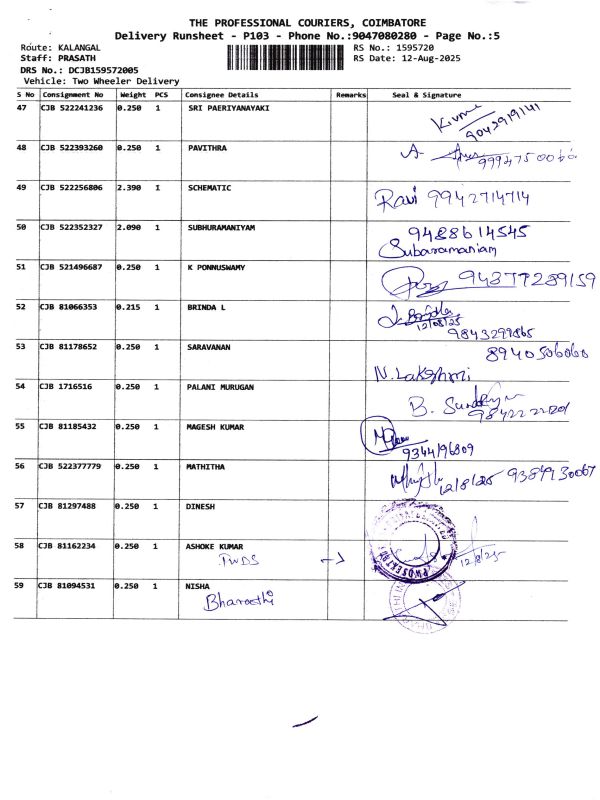 THE PROFESSIONAL COURIERS, COIMBATORE
Delivery Runsheet - P103 - Phone No.:9047080280 - Page No.:5
Route: KALANGAL RS No.: 1595720
Staff: PRASATH RS Date: 12-Aug-2025
DRS No.: DCJB159572005
Vehicle: Two Wheeler Delivery
S No Consignment No Weight PCS Consignee Details Remarks Seal & Signature
47 CJB 522241236 0.250 1 SRI PAERIYANAYAKI
9042919141
48 CJB 522393260 0.250 1 PAVITHRA
49 CJB 522256806 2.390 1 SCHEMATIC Ravi 9942714714
50 CJB 522352327 2.090 1 SUBHURAMANIYAM 9488614545
Subaramaniam
51 CJB 521496687 0.250 1 K PONNUSWAMY 94377289159
52 CJB 81066353 0.215 1 BRINDA L
12/08/25
9843299865
53 CJB 81178652 0.250 1 SARAVANAN 8940506060
N. Lakshmi
54 CJB 1716516 0.250 1 PALANI MURUGAN B.
55 CJB 81185432 0.250 1 MAGESH KUMAR
9344196809
56 CJB 522377779 0.250 1 MATHITHA 12/8/25 9384930067
57 CJB 81297488 0.250 1 DINESH
58 CJB 81162234 0.250 1 ASHOKE KUMAR
PWDS 12/8/25
59 CJB 81094531 0.250 1 NISHA
Bharathi